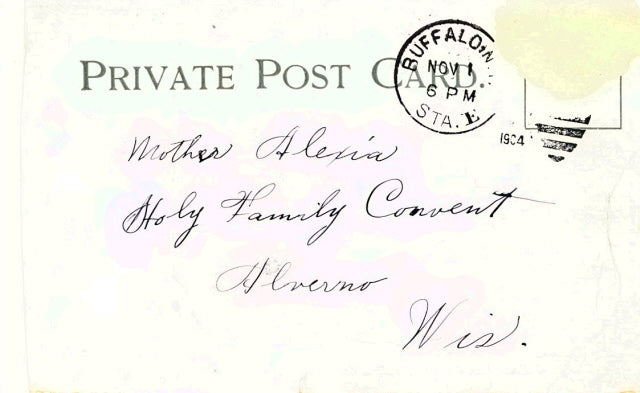 PRIVATE POST CARD.
BUFFALO, N.Y.
NOV 1
6 PM
STA. E
1904
Mother Alexia
Holy Family Convent
Alverno
Wis.